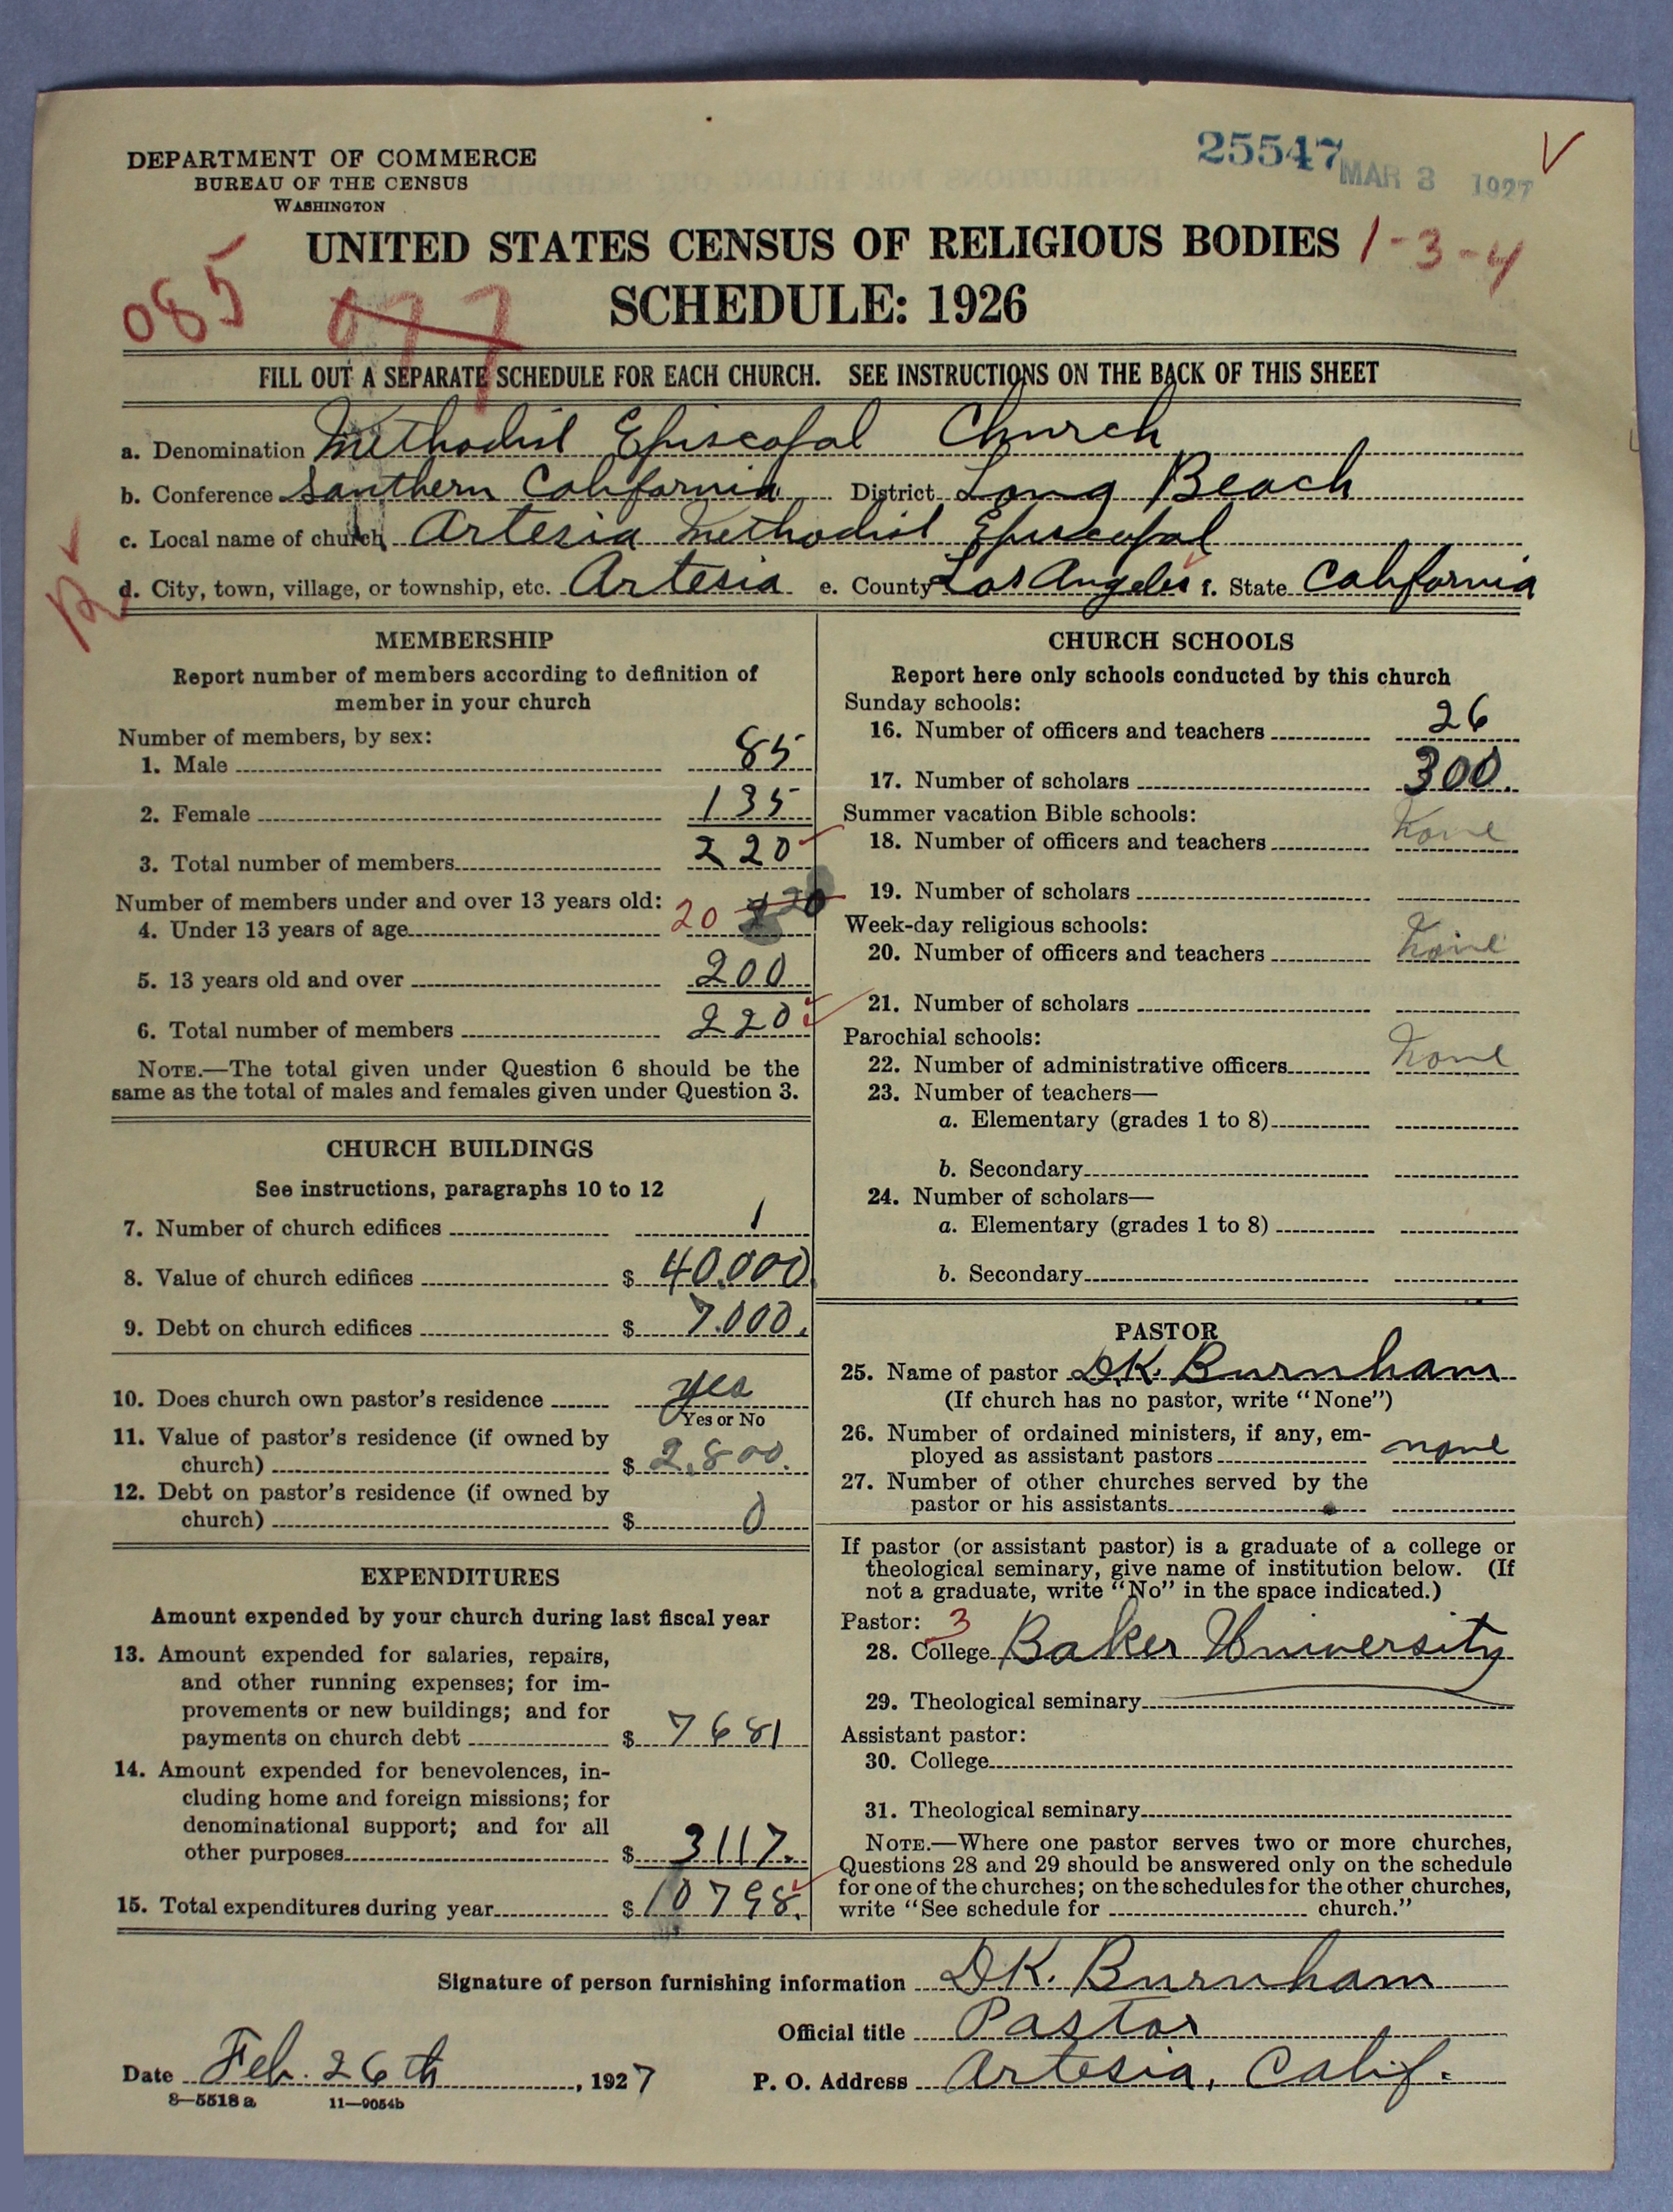 25547 MAR 3 1927 V
DEPARTMENT OF COMMERCE
BUREAU OF THE CENSUS
WASHINGTON
UNITED STATES CENSUS OF RELIGIOUS BODIES 1-3-4
085 077 SCHEDULE: 1926
FILL OUT A SEPARATE SCHEDULE FOR EACH CHURCH. SEE INSTRUCTIONS ON THE BACK OF THIS SHEET
a. Denomination Methodist Episcopal Church
b. Conference Southern California District Long Beach
c. Local name of church Artesia Methodist Episcopal
d. City, town, village, or township, etc. Artesia e. County Los Angeles f. State California
MEMBERSHIP
Report number of members according to definition of
member in your church
Number of members, by sex:
1. Male 85
2. Female 135
3. Total number of members 220
Number of members under and over 13 years old:
4. Under 13 years of age 20 20
5. 13 years old and over 200
6. Total number of members 220
NOTE.—The total given under Question 6 should be the
same as the total of males and females given under Question 3.
CHURCH BUILDINGS
See instructions, paragraphs 10 to 12
7. Number of church edifices 1
8. Value of church edifices $ 40.000
9. Debt on church edifices $ 7.000.
10. Does church own pastor's residence yes
Yes or No
11. Value of pastor's residence (if owned by
church) $ 2,800.
12. Debt on pastor's residence (if owned by
church) $ 0
EXPENDITURES
Amount expended by your church during last fiscal year
13. Amount expended for salaries, repairs,
and other running expenses; for im-
provements or new buildings; and for
payments on church debt $ 7681
14. Amount expended for benevolences, in-
cluding home and foreign missions; for
denominational support; and for all
other purposes $ 3117.
15. Total expenditures during year $ 10798.
CHURCH SCHOOLS
Report here only schools conducted by this church
Sunday schools:
16. Number of officers and teachers 26
17. Number of scholars 300.
Summer vacation Bible schools:
18. Number of officers and teachers None
19. Number of scholars
Week-day religious schools:
20. Number of officers and teachers None
21. Number of scholars
Parochial schools:
22. Number of administrative officers None
23. Number of teachers—
a. Elementary (grades 1 to 8)
b. Secondary
24. Number of scholars—
a. Elementary (grades 1 to 8)
b. Secondary
PASTOR
25. Name of pastor D.K. Burnham
(If church has no pastor, write "None")
26. Number of ordained ministers, if any, em-
ployed as assistant pastors none
27. Number of other churches served by the
pastor or his assistants
If pastor (or assistant pastor) is a graduate of a college or
theological seminary, give name of institution below. (If
not a graduate, write "No" in the space indicated.)
Pastor: 3
28. College Baker University
29. Theological seminary
Assistant pastor:
30. College
31. Theological seminary
NOTE.—Where one pastor serves two or more churches,
Questions 28 and 29 should be answered only on the schedule
for one of the churches; on the schedules for the other churches,
write "See schedule for church."
Signature of person furnishing information D.K. Burnham
Official title Pastor
Date Feb. 26th, 1927 P. O. Address Artesia, Calif.
8—5518 a 11—9054b